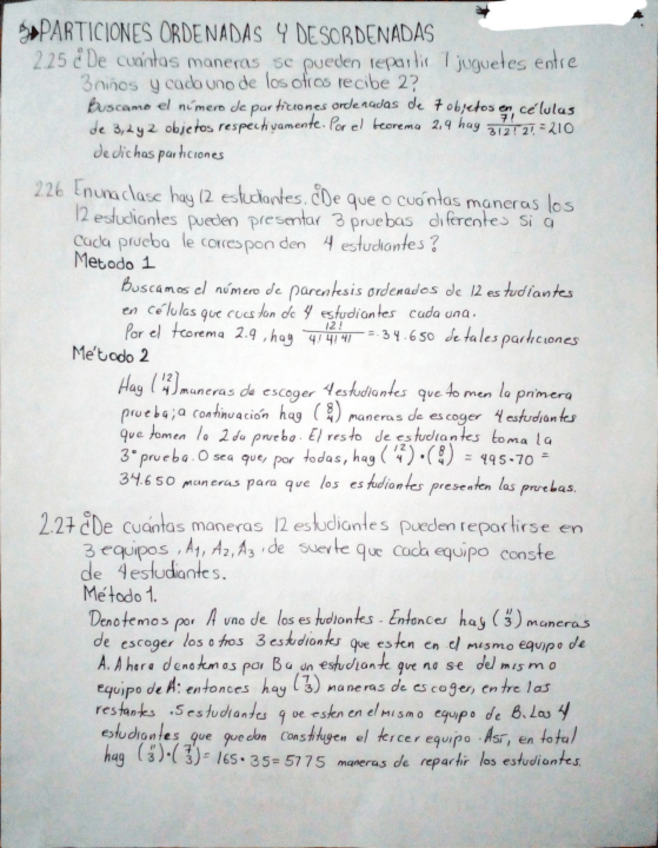 PARTICIONES ORDENADAS Y DESORDENADAS
2.25 ¿De cuántas maneras se pueden repartir 7 juguetes entre
3 niños y cada uno de los otros recibe 2?
Buscamo el número de particiones ordenadas de 7 objetos en células
de 3, 2 y 2 objetos respectivamente. Por el teorema 2.9 hay 7!/3!2!2! = 210
de dichas particiones
2.26 En una clase hay 12 estudiantes. ¿De que o cuántas maneras los
12 estudiantes pueden presentar 3 pruebas diferentes si a
cada prueba le corresponden 4 estudiantes?
Metodo 1
Buscamos el número de parentesis ordenados de 12 estudiantes
en células que constan de 4 estudiantes cada una.
Por el teorema 2.9, hay 12!/4!4!4! = 34.650 de tales particiones
Método 2
Hay (12 4) maneras de escoger 4 estudiantes que tomen la primera
prueba; a continuación hag (8 4) maneras de escoger 4 estudiantes
que tomen la 2da prueba. El resto de estudiantes toma la
3° prueba. O sea que, por todas, hag (12 4) · (8 4) = 495 · 70 =
34.650 maneras para que los estudiantes presenten las pruebas.
2.27 ¿De cuántas maneras 12 estudiantes pueden repartirse en
3 equipos, A1, A2, A3, de suerte que cada equipo conste
de 4 estudiantes.
Método 1.
Denotemos por A uno de los estudiantes. Entonces hay (11 3) maneras
de escoger los otros 3 estudiantes que esten en el mismo equipo de
A. Ahora denotemos por B a un estudiante que no se del mismo
equipo de A: entonces hay (7 3) maneras de escoger, entre los
restantes .5 estudiantes que esten en el mismo equipo de B. Los 4
estudiantes que quedan constituyen el tercer equipo. Así, en total
hag (11 3) · (7 3) = 165 · 35 = 5775 maneras de repartir los estudiantes.